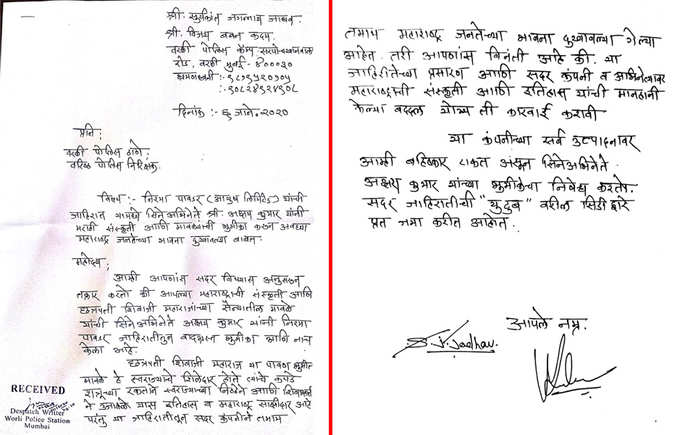 श्री. सूर्यकांत जगन्नाथ जाधव
श्री. विजय बबन कदम
वरळी पोलिस कॅम्प सरपोचखानवाला
रोड, वरळी मुंबई - ४०००३०
दिनांक :- ६ जाने. २०२०
प्रति,
वरळी पोलिस ठाणे
वरिष्ठ पोलिस निरिक्षक.
विषय :- निरमा पावडर (आयुध लिमिटेड) यांची
जाहिरात यामध्ये सिने अभिनेते श्री. अक्षय कुमार यांनी
मराठी संस्कृती आणि मावळ्यांची भूमीका करून अवघ्या
महाराष्ट्र जनतेच्या भावना दुखावल्या बाबत.
महोदय,
आम्ही आपणांस सदर विषयास अनुसरून
तक्रार करतो की आपल्या महाराष्ट्राची संस्कृती आणि
छत्रपती शिवाजी महाराजांच्या सैन्यातील मावळे
यांची सिने अभिनेते अक्षय कुमार यांनी निरमा
पावडर जाहिरातीतून भूमिका आणि नाच
केला आहे.
छत्रपती शिवाजी महाराज या पावन भूमीत
मावळे हे स्वराज्याचे शिलेदार होते त्यांचे कपडे
शत्रूच्या रक्ताने स्वराज्याच्या आणि
ने यास इतिहास व महाराष्ट्र साक्षीदार आहे
परंतु या जाहिरातीतून सदर कंपनीने तमाम
RECEIVED
Despatch Writer
Worli Police Station
Mumbai
तमाम महाराष्ट्र जनतेच्या भावना दुखावल्या गेल्या
आहेत. तरी आपणांस विनंती आहे की, या
जाहिरीतेच्या प्रसारण आणि सदर कंपनी व अभिनेत्यावर
महाराष्ट्राची संस्कृती आणि इतिहास यांची मानहानी
केल्या बद्दल योग्य ती कारवाई करावी
या कंपनीच्या सर्व उत्पादनावर
आम्ही बहिष्कार टाकत असून सिनेअभिनेते
अक्षय कुमार यांच्या भूमीकेचा निषेध करतो.
सदर जाहिरातीची "युटुब" वरील सिडी द्वारे
प्रत जमा करीत आहोत.
आपले नम्र.
S. J. Jadhav.